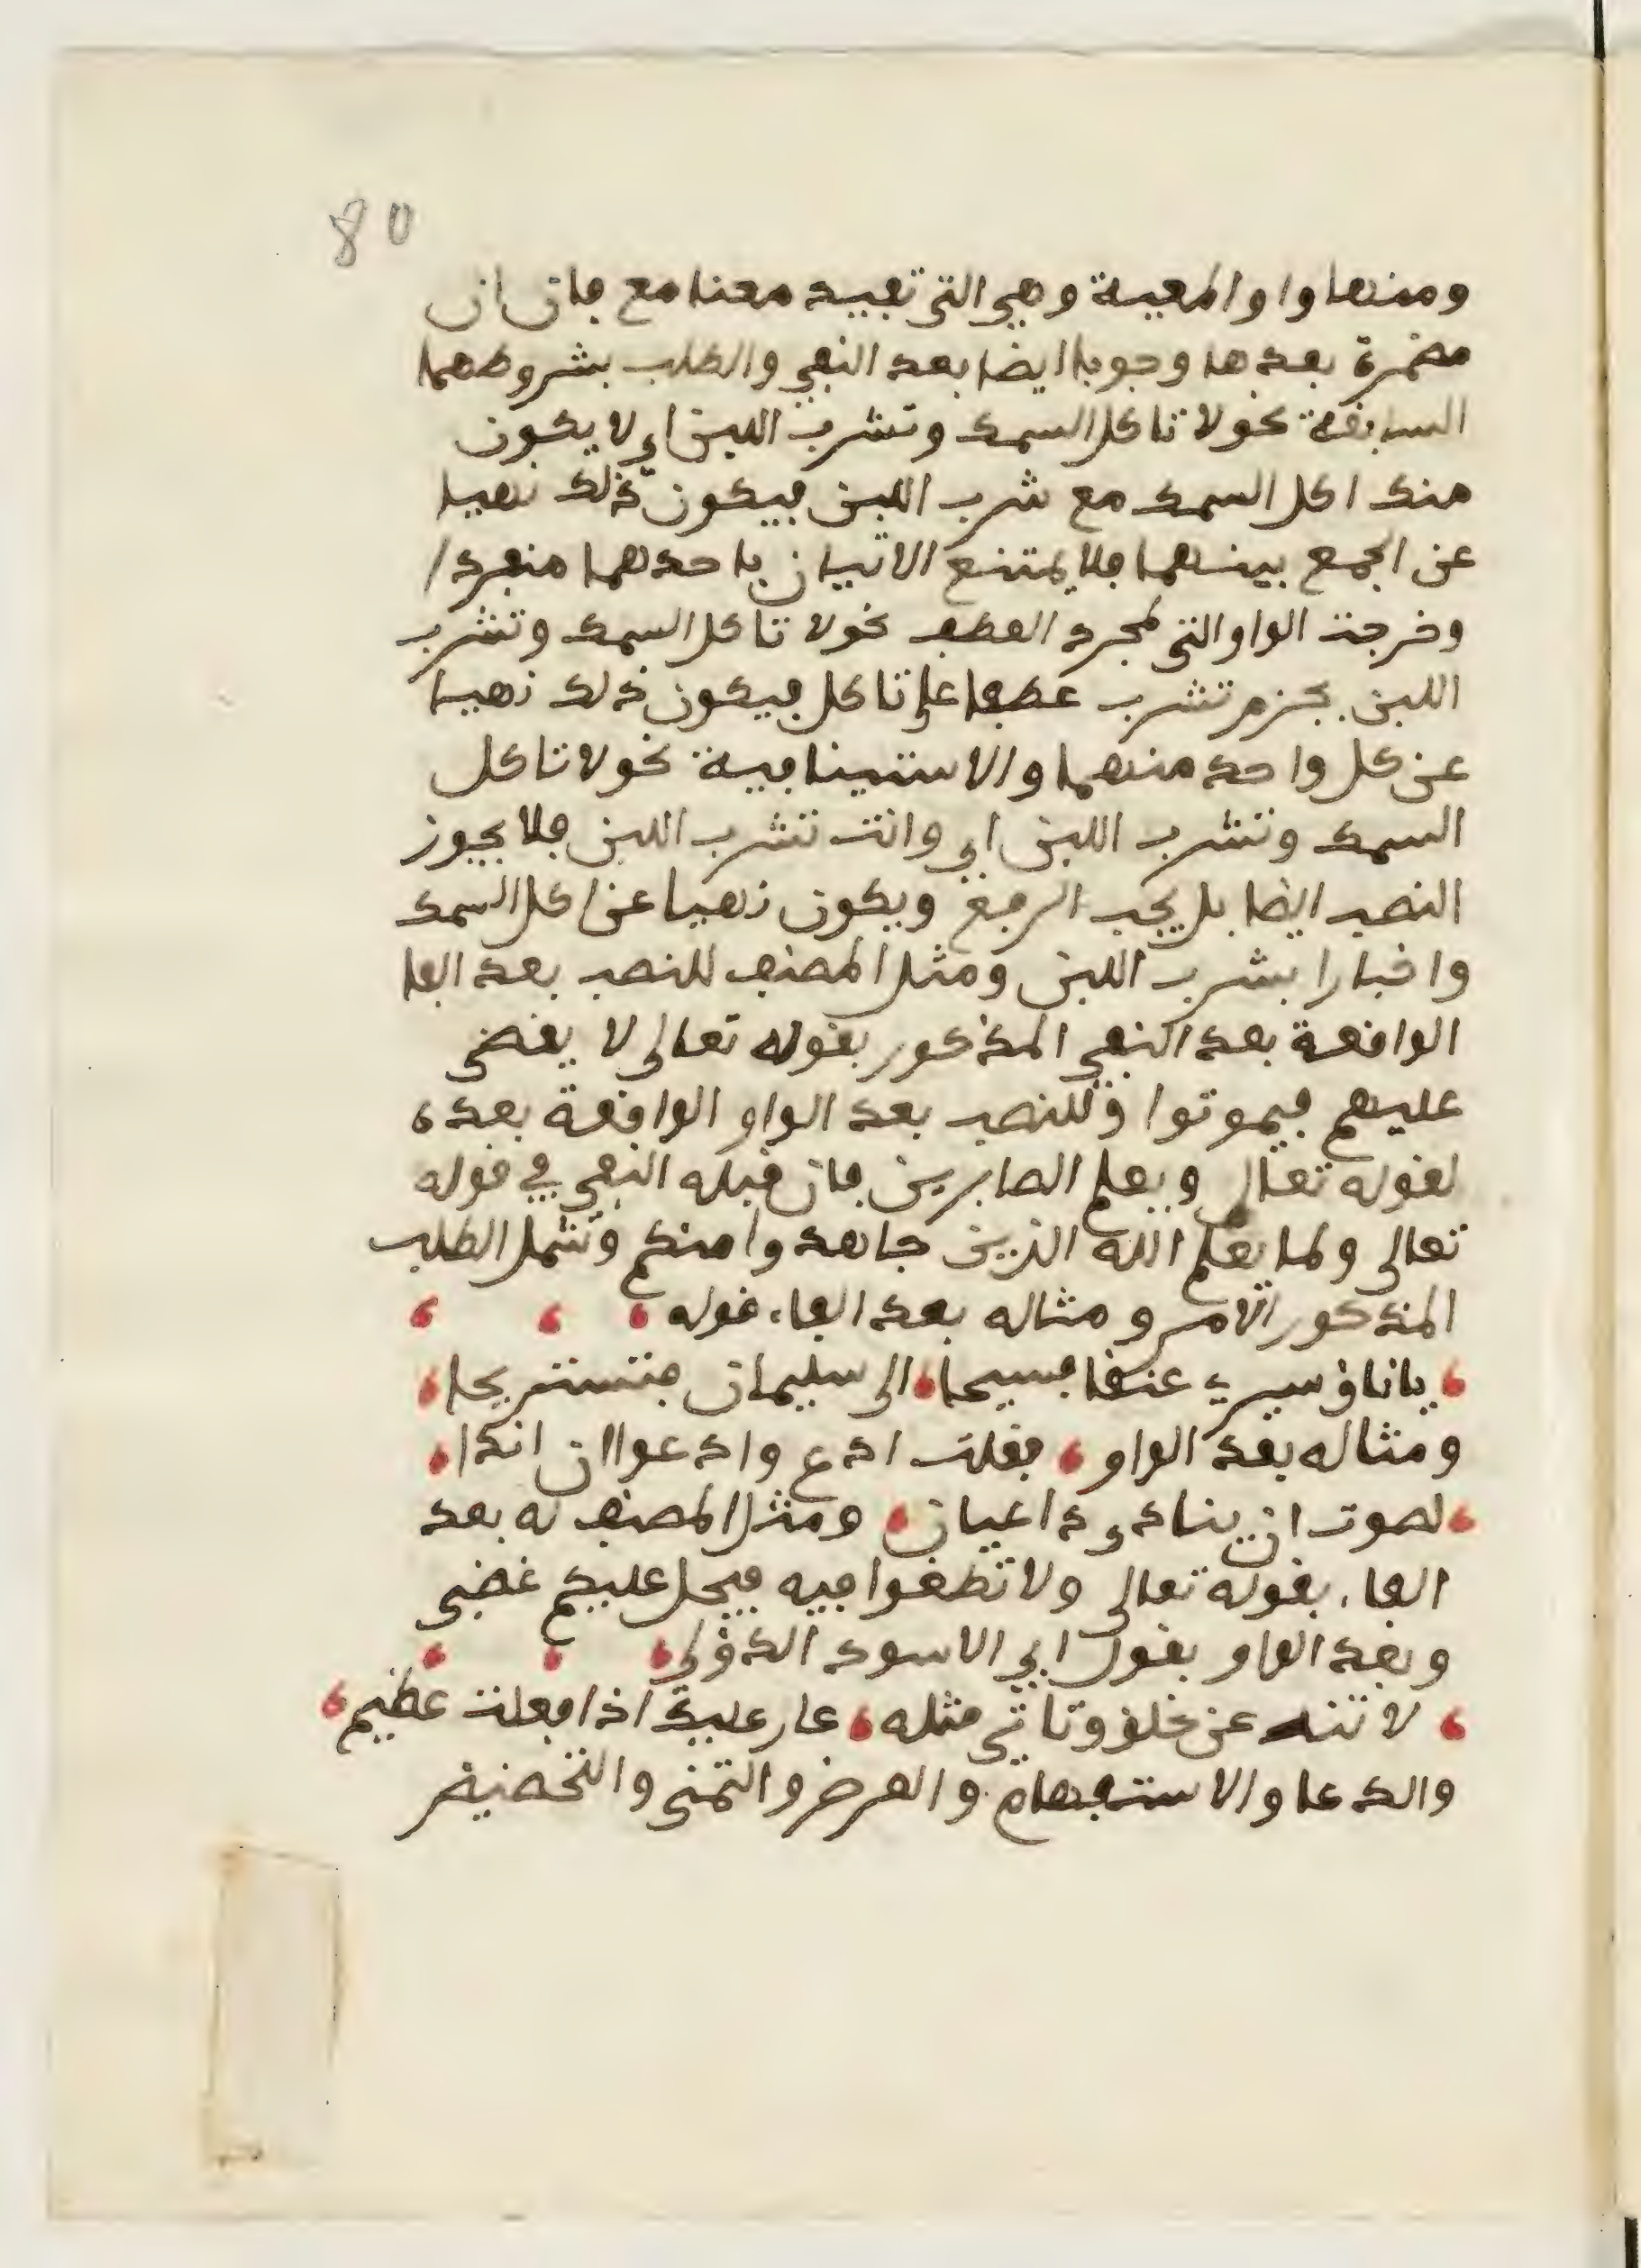 80
ومنها واو المعية وهي التي تفيد معنا مع فان ان
مضمرة بعدها وجوبا ايضا بعد النفي والطلب بشروطهما
السابقة نحو لا تاكل السمك وتشرب اللبن اي لا يكون
منك اكل السمك مع شرب اللبن فيكون ذلك نهيا
عن الجمع بينهما فلا يمتنع الاتيان باحدهما منفردا
وخرجت الواو التي لمجرد العطف نحو لا تاكل السمك وتشرب
اللبن بجزم تشرب عطفا على تاكل فيكون ذلك نهيا
عن كل واحد منهما والاستينافية نحو لا تاكل
السمك وتشرب اللبن اي وانت تشرب اللبن فلا يجوز
النصب ايضا بل يجب الرفع ويكون نهيا عن اكل السمك
واخبارا بشرب اللبن ومثل المصنف للنصب بعد الفا
الواقعة بعد النفي المذكور بقوله تعالى لا يقضى
عليهم فيموتوا وللنصب بعد الواو الواقعة بعده
لقوله تعالى ويعلم الصابرين فان قبله النفي في قوله
تعالى ولما يعلم الله الذين جاهدوا منكم وشمل الطلب
المذكور الامر ومثاله بعد الفاء قوله
ياناق سيري عنقا فسيحا الى سليمان فنستريحا
ومثاله بعد الواو فقلت ادع وادعو ان اندا
لصوت ان ينادي داعيان ومثل المصنف له بعد
الفاء بقوله تعالى ولا تطغوا فيه فيحل عليكم غضبي
وبعد الواو بقول ابي الاسود الدؤلي
لا تنه عن خلق وتاتي مثله عار عليك اذا فعلت عظيم
والدعا والاستفهام والعرض والتمني والتحضيض